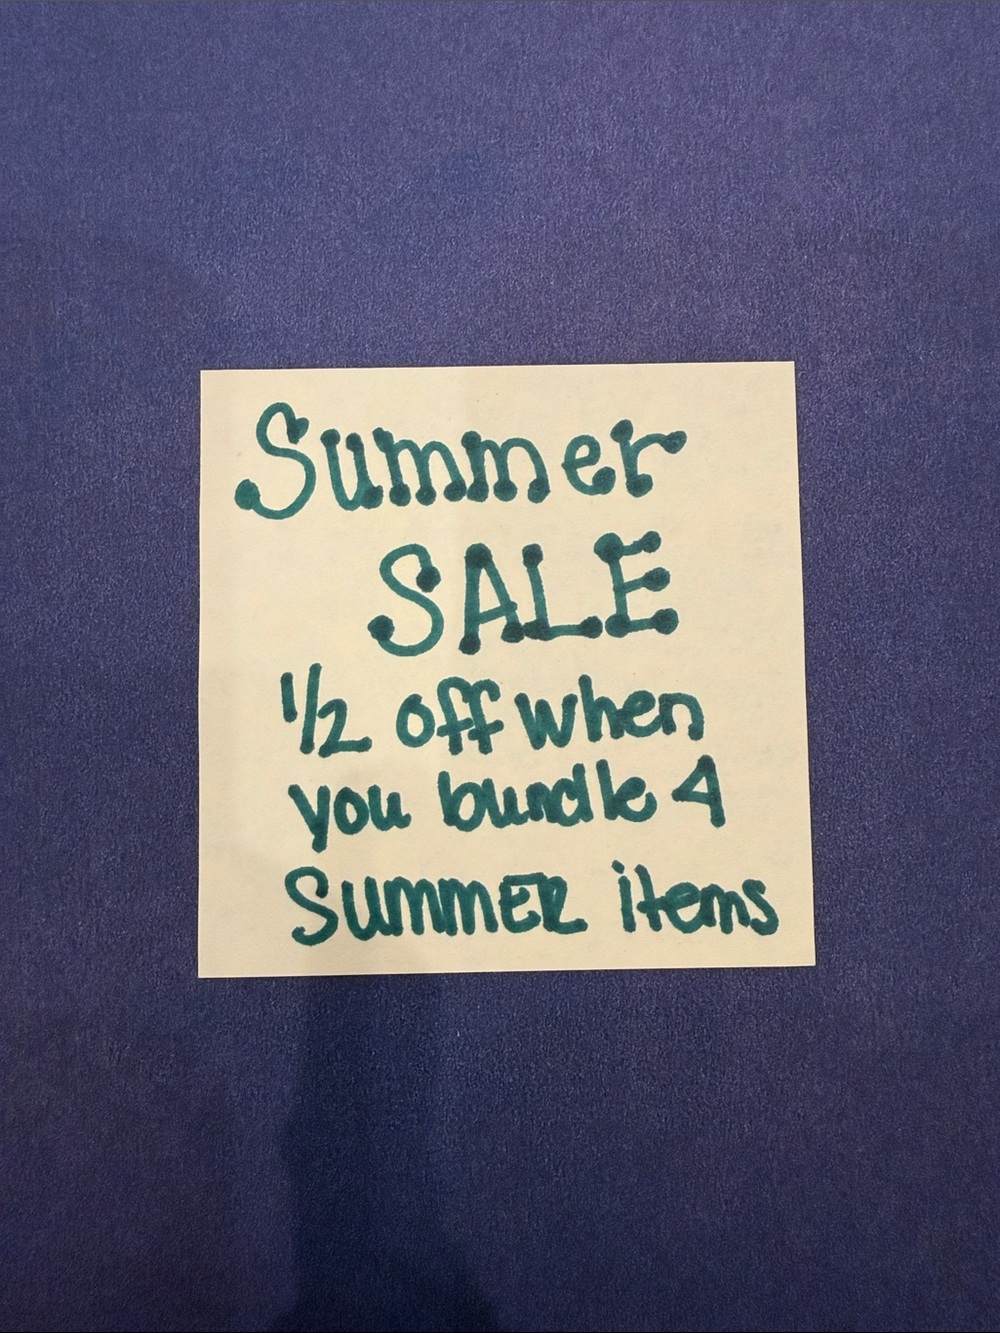 Summer
SALE
1/2 off when
you bundle 4
SUMMER items